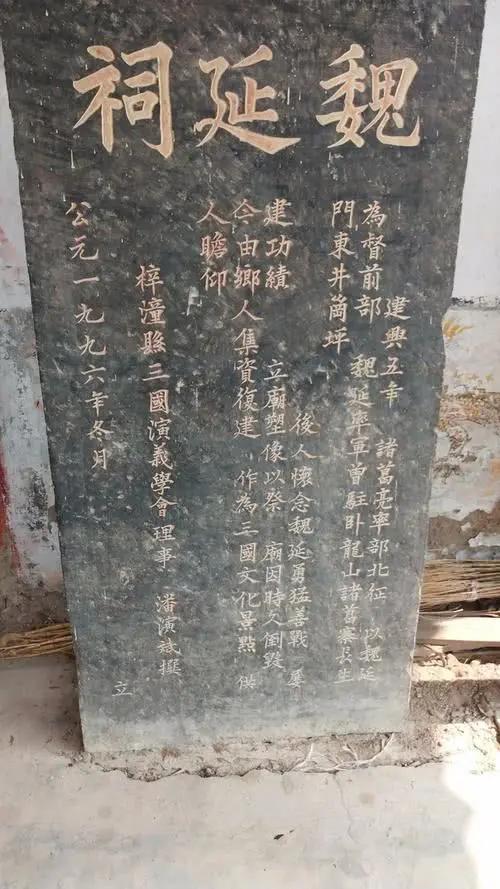 魏延祠
建興五年 諸葛亮率部北征 以魏延
為督前部 魏延率軍曾駐卧龍山諸葛寨長生
門東井崗坪
後人懷念魏延勇猛善戰 屢
建功績 立廟塑像以祭 廟因時久倒毀
今由鄉人集資復建 作為三國文化景點 供
人瞻仰
梓潼縣三國演義學會理事 潘演斌撰
公元一九九六年冬月 立